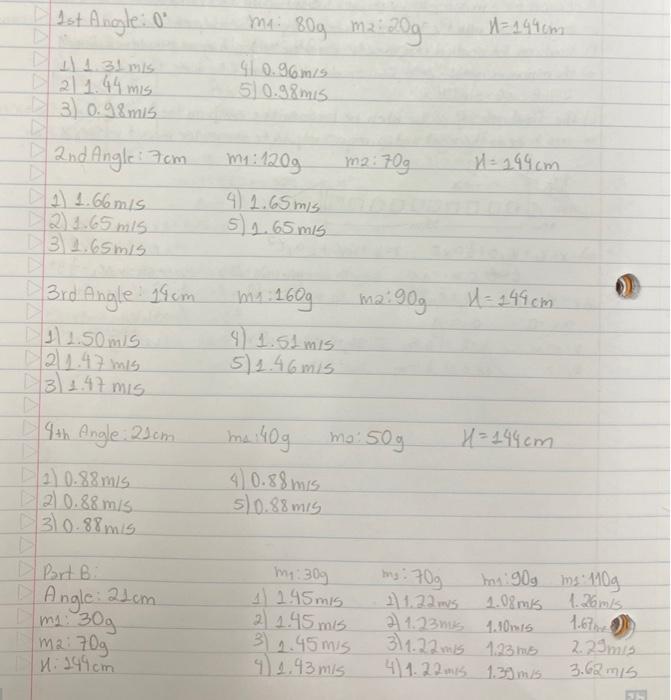 1st Angle: 0° m1: 80g m2: 20g H=144cm
1) 1.31 m/s 4) 0.96m/s
2) 1.44 m/s 5) 0.98m/s
3) 0.98m/s
2nd Angle: 7cm m1: 120g m2: 70g H=144cm
1) 1.66m/s 4) 1.65m/s
2) 1.65 m/s 5) 1.65m/s
3) 1.65m/s
3rd Angle: 14cm m1: 160g m2: 90g H=144cm
1) 1.50m/s 4) 1.51m/s
2) 1.47 m/s 5) 1.46m/s
3) 1.47 m/s
4th Angle: 21cm m1: 40g m2: 50g H=144cm
1) 0.88m/s 4) 0.88m/s
2) 0.88m/s 5) 0.88m/s
3) 0.88m/s
Part B: m1: 30g m1: 70g m1: 90g m1: 110g
Angle: 21cm 1) 1.45m/s 1) 1.22m/s 1.08m/s 1.26m/s
m1: 30g 2) 1.45m/s 2) 1.23m/s 1.10m/s 1.67
m2: 70g 3) 1.45m/s 3) 1.22m/s 1.23m/s 2.29m/s
H: 144cm 4) 1.43m/s 4) 1.22m/s 1.39m/s 3.62m/s